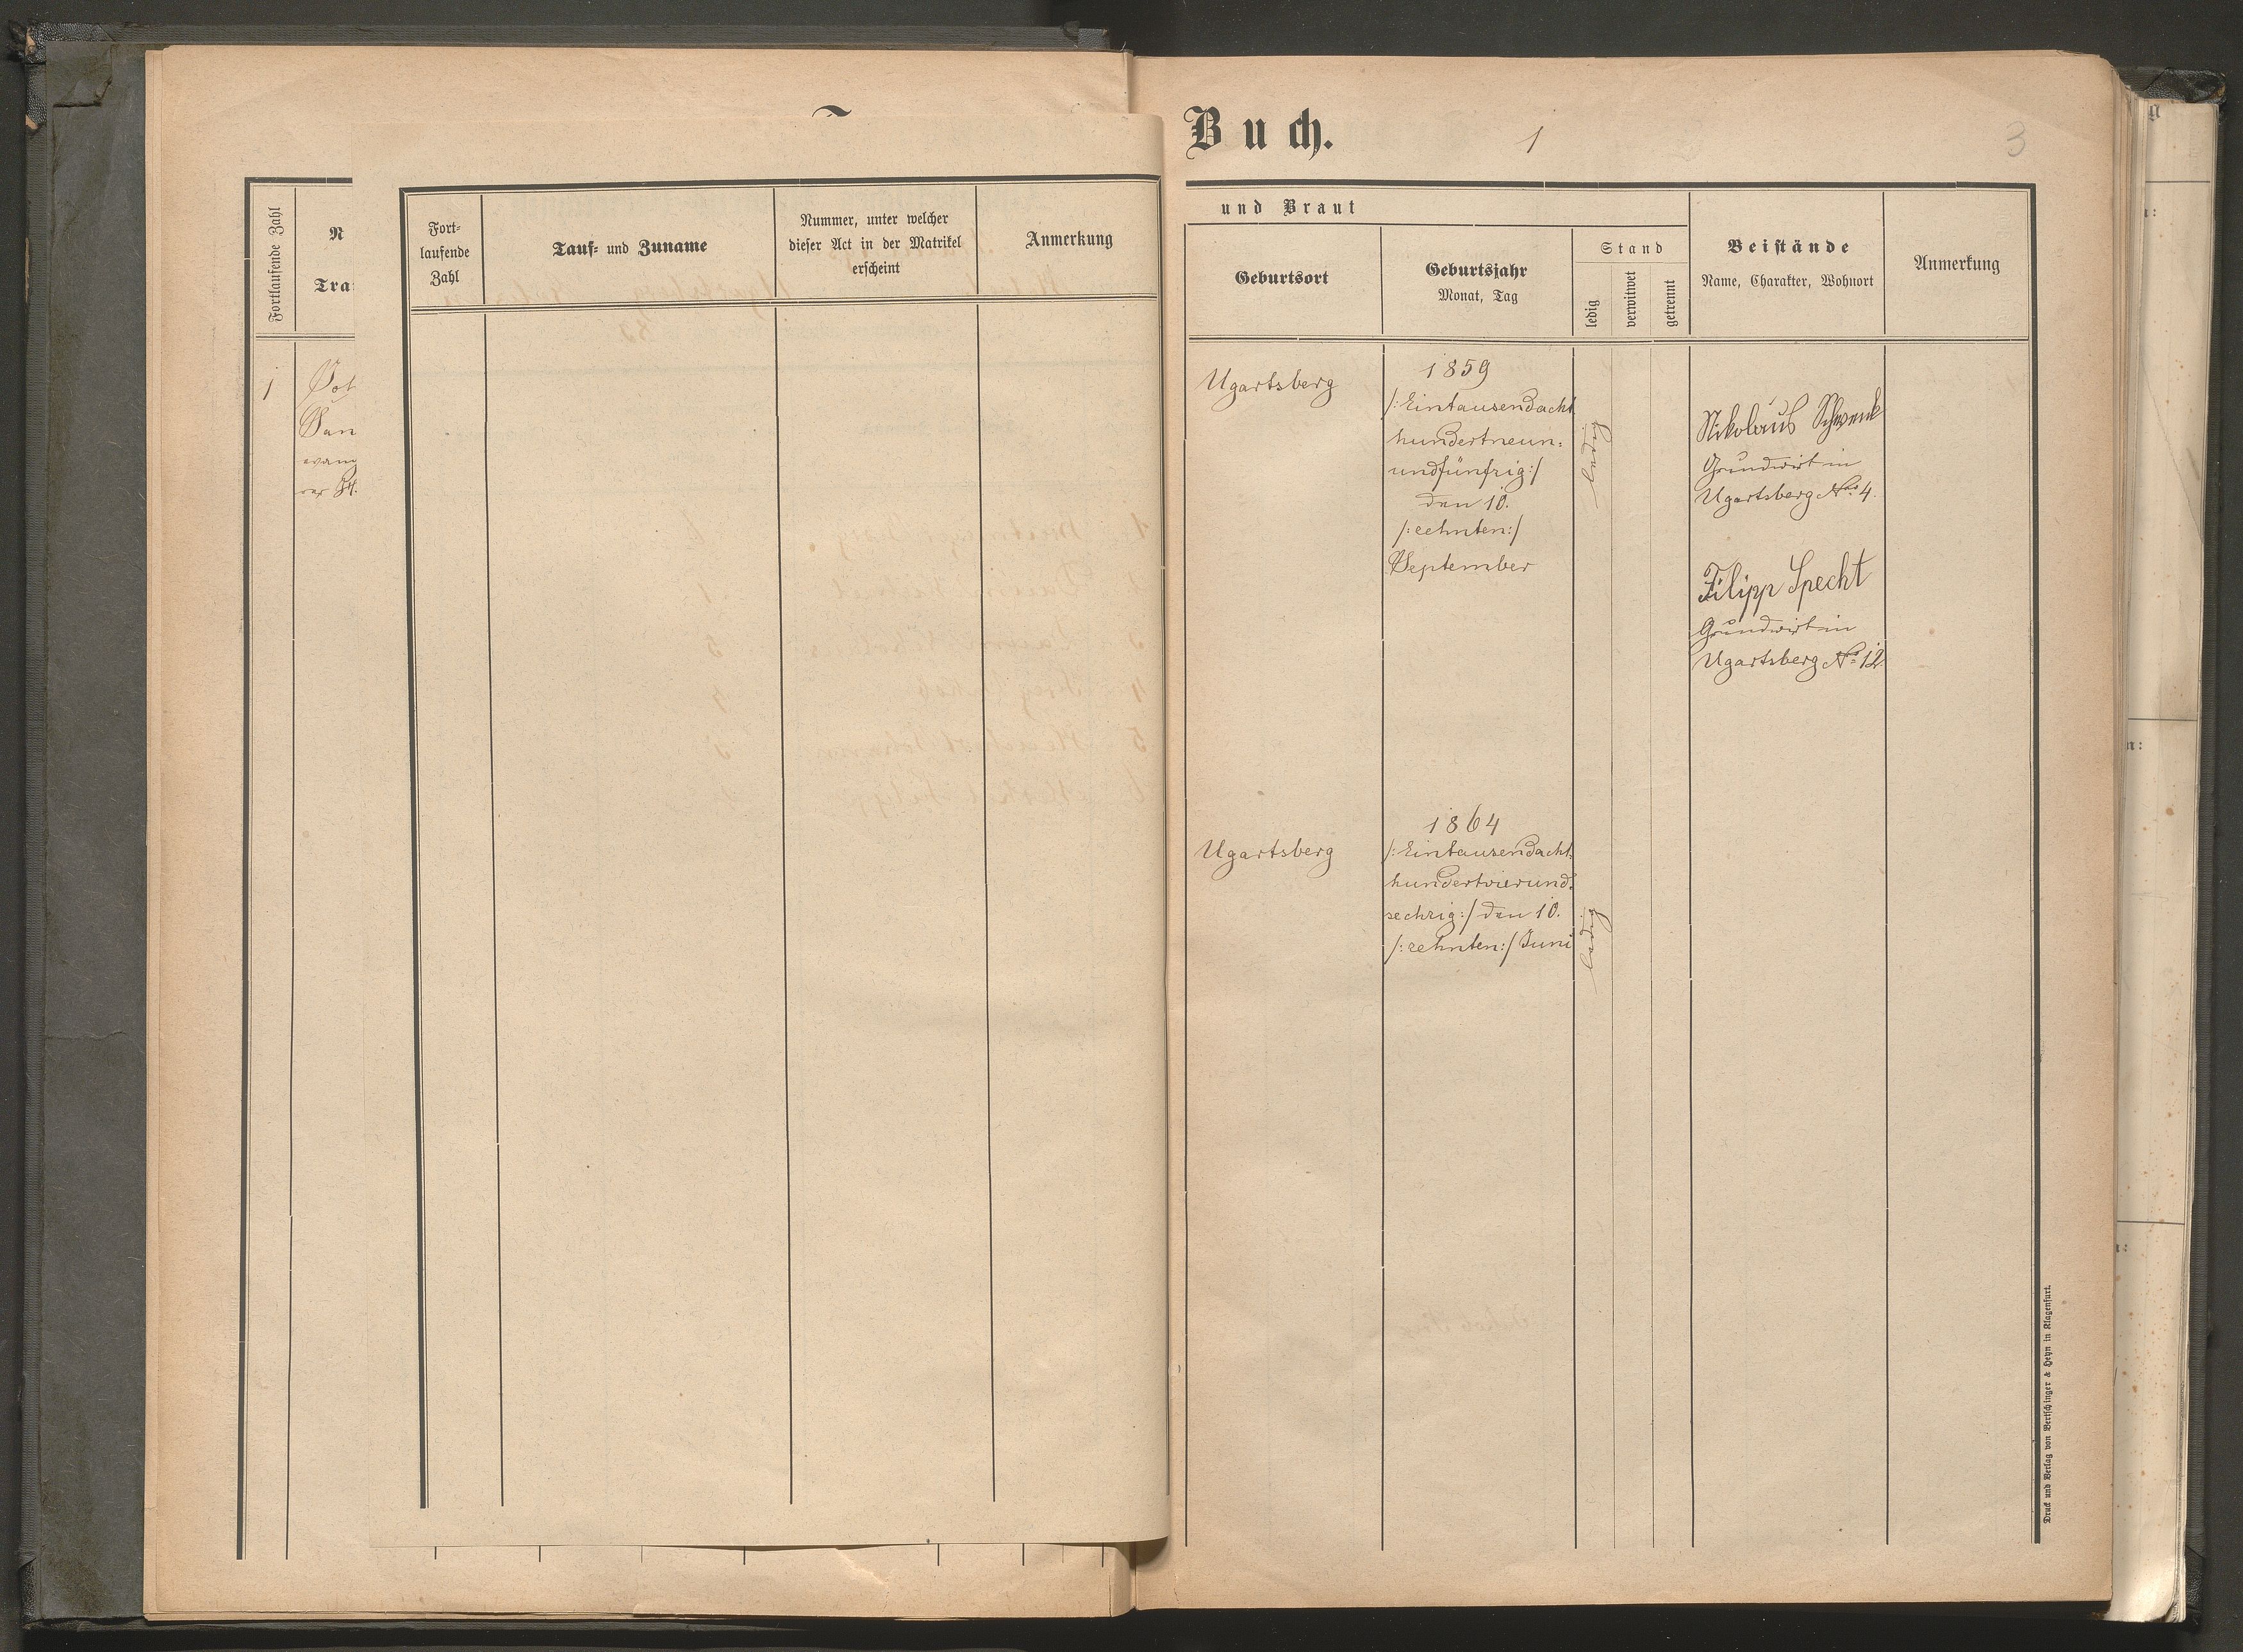 Buch.
1
3
Fortlaufende Zahl
N
Tra
1
Fort-
laufende
Zahl
Tauf- und Zuname
Nummer, unter welcher
dieser Act in der Matrikel
erscheint
Anmerkung
und Braut
Geburtsort
Geburtsjahr
Monat, Tag
Stand
ledig
verwitwet
getrennt
Beistände
Name, Charakter, Wohnort
Anmerkung
Ugartsberg
1859
/:Eintausendacht
hundertneun-
undfünfzig:/
den 10.
/:zehnten:/
September
ledig
Nikolaus Schwenk
Grundwirt in
Ugartsberg No. 4.
Filipp Specht
Grundwirt in
Ugartsberg No. 12
Ugartsberg
1864
/:Eintausendacht-
hundertvierund-
sechzig:/ den 10.
/:zehnten:/ Juni
ledig
Druck und Verlag von Bertschinger & Heyn in Klagenfurt.